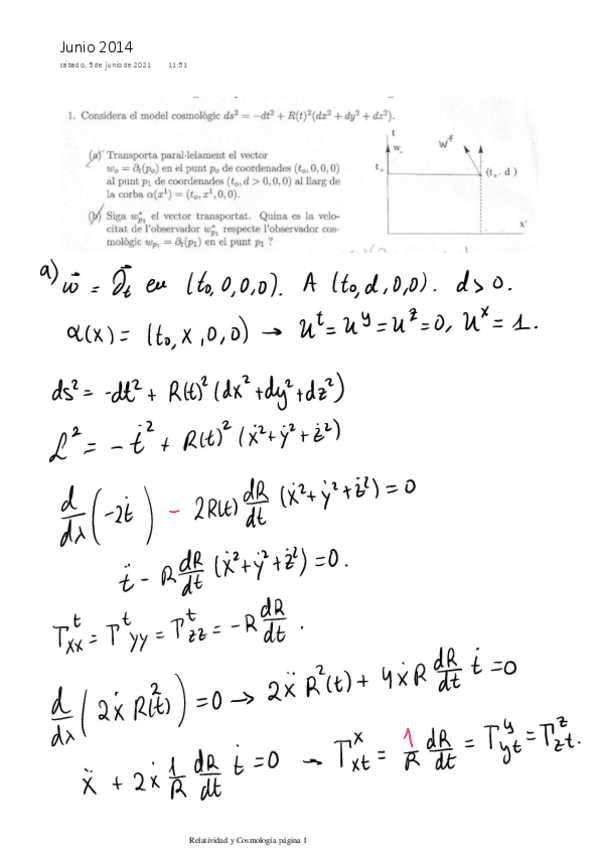 Junio 2014
sábado, 5 de junio de 2021 11:51
1. Considera el model cosmològic ds² = −dt² + R(t)²(dx² + dy² + dz²).
(a) Transporta paral·lelament el vector
w₀ = ∂ₜ(p₀) en el punt p₀ de coordenades (t₀, 0, 0, 0)
al punt p₁ de coordenades (t₀, d > 0, 0, 0) al llarg de
la corba α(x¹) = (t₀, x¹, 0, 0).
(b) Siga w*ₚ₁ el vector transportat. Quina es la velo-
citat de l'observador w*ₚ₁ respecte l'observador cos-
mològic wₚ₁ = ∂ₜ(p₁) en el punt p₁ ?
t
w₀
W*
t₀
(t₀, d)
x¹
a) w⃗ = ∂⃗ₜ en (t₀, 0, 0, 0). A (t₀, d, 0, 0). d > 0.
α(x) = (t₀, x, 0, 0) → uᵗ = uʸ = uᶻ = 0, uˣ = 1.
ds² = -dt² + R(t)² (dx² + dy² + dz²)
L² = - ṫ² + R(t)² (ẋ² + ẏ² + ż²)
d/dλ (-2ṫ) - 2R(t) dR/dt (ẋ² + ẏ² + ż²) = 0
ẗ - R dR/dt (ẋ² + ẏ² + ż²) = 0.
Γᵗₓₓ = Γᵗyy = Γᵗzz = -R dR/dt .
d/dλ (2ẋ R(t)²) = 0 → 2ẍ R²(t) + 4ẋR dR/dt ṫ = 0
ẍ + 2ẋ 1/R dR/dt ṫ = 0 → Γˣₓₜ = 1/R dR/dt = Γʸyt = Γᶻzt.
Relatividad y Cosmología página 1